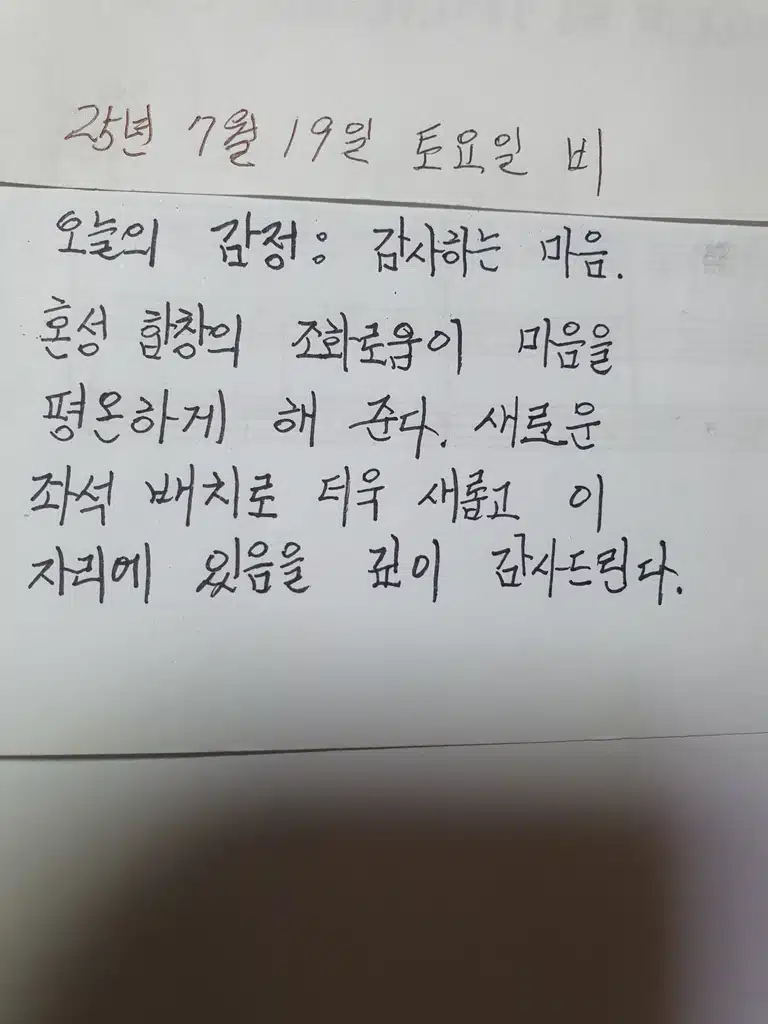 25년 7월 19일 토요일 비
오늘의 감정: 감사하는 마음.
혼성 합창의 조화로움이 마음을
평온하게 해 준다. 새로운
좌석 배치로 더욱 새롭고 이
자리에 있음을 깊이 감사드린다.